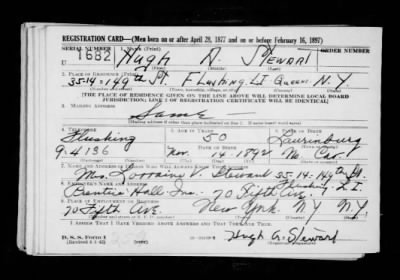 REGISTRATION CARD—(Men born on or after April 28, 1877 and on or before February 16, 1897)
SERIAL NUMBER 1. NAME (Print) ORDER NUMBER
U 1682 Hugh A. Stewart
2. PLACE OF RESIDENCE (Print)
35-14-149th St. Flushing L I Queens N.Y
[THE PLACE OF RESIDENCE GIVEN ON THE LINE ABOVE WILL DETERMINE LOCAL BOARD
JURISDICTION; LINE 2 OF REGISTRATION CERTIFICATE WILL BE IDENTICAL]
3. MAILING ADDRESS
Same
4. TELEPHONE 5. AGE IN YEARS 6. PLACE OF BIRTH
Flushing 50 Laurinburg
DATE OF BIRTH
9-4136 Nov. 14-1892 No Car.
7. NAME AND ADDRESS OF PERSON WHO WILL ALWAYS KNOW YOUR ADDRESS
Mrs. Lorraine V. Stewart 35-14-149th St.
Flushing, L.I.
8. EMPLOYER'S NAME AND ADDRESS
Hall Inc. 70 Fifth Ave.
9. PLACE OF EMPLOYMENT OR BUSINESS
70 Fifth Ave. New York NY NY.
I AFFIRM THAT I HAVE VERIFIED ABOVE ANSWERS AND THAT THEY ARE TRUE.
D. S. S. Form 1
Hugh A. Stewart